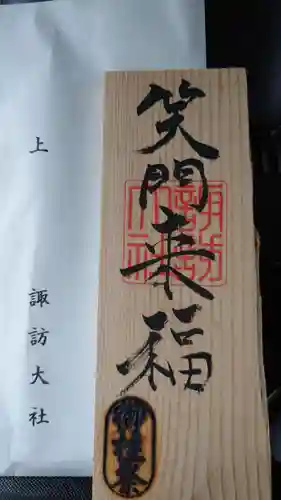 笑門来福
諏訪大社
御柱祭
上
諏訪大社